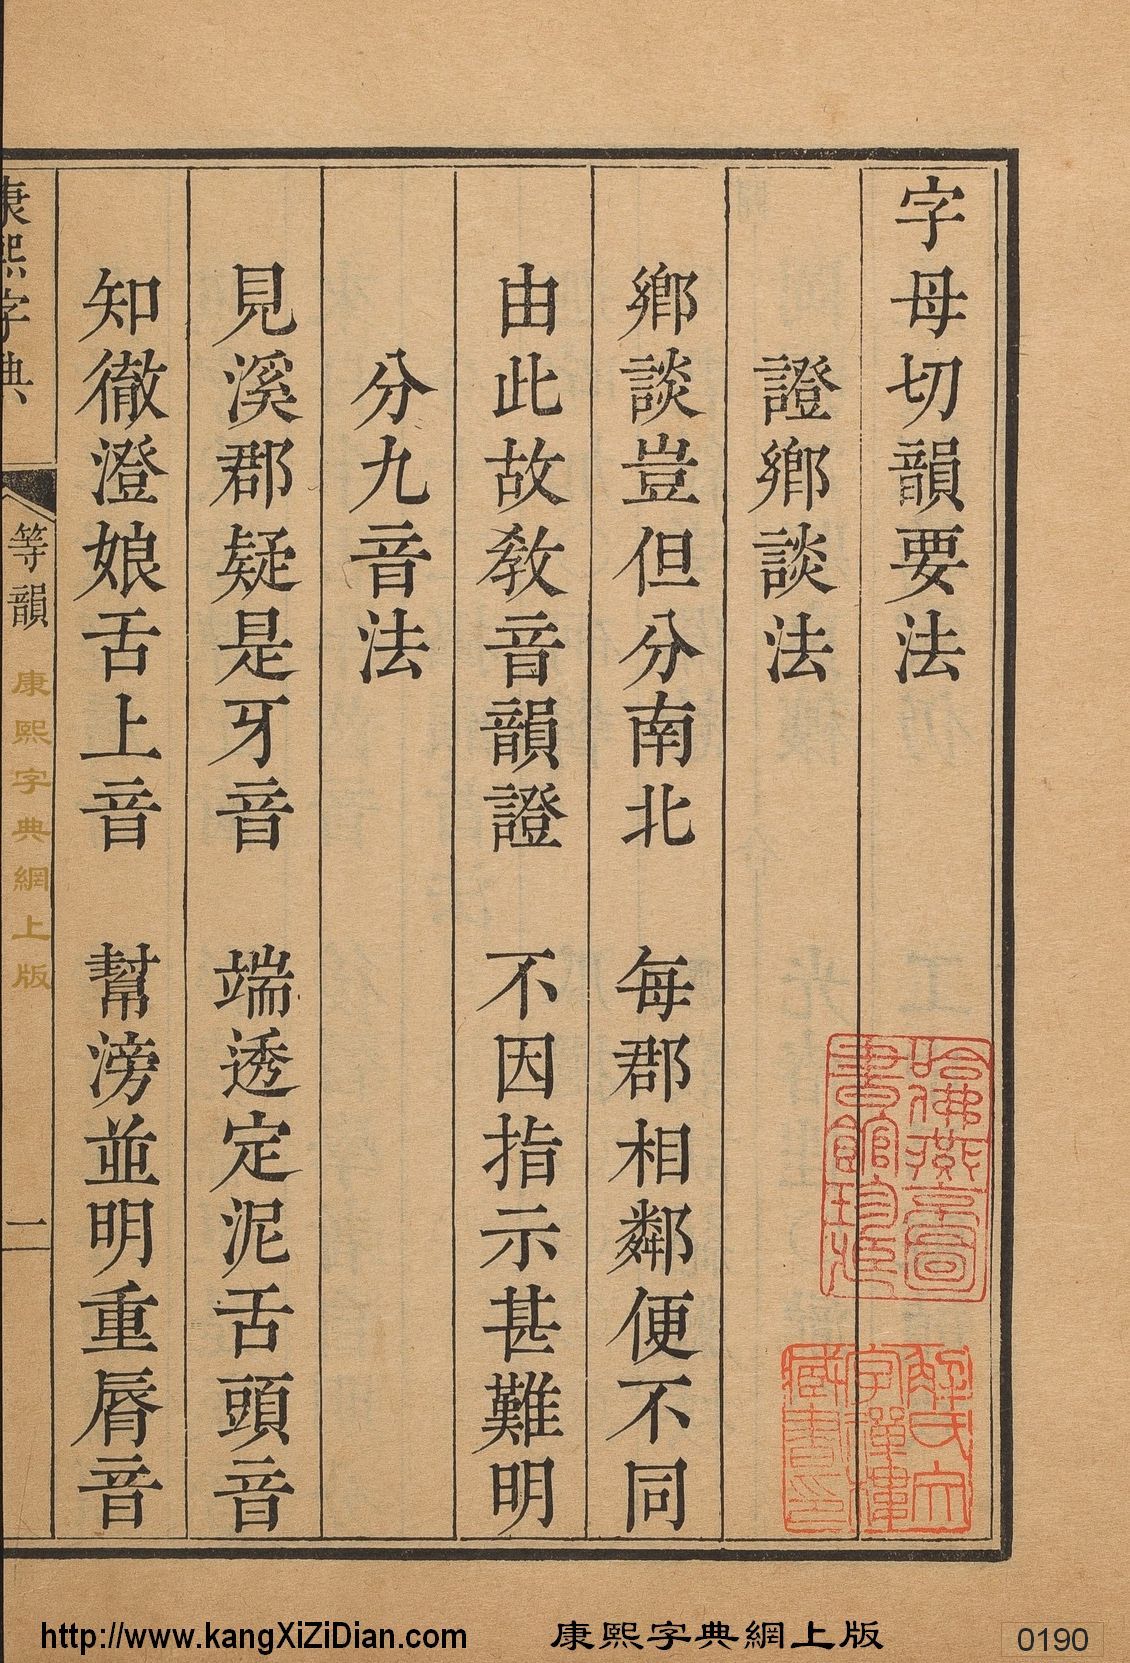 字母切韻要法
證鄉談法
鄉談豈但分南北　每郡相鄰便不同
由此故教音韻證　不因指示甚難明
分九音法
見溪郡疑是牙音　端透定泥舌頭音
知徹澄娘舌上音　幫滂並明重脣音
康熙字典
等韻
一
康熙字典網上版
哈佛燕京圖
書館珍藏
藏書印
http://www.kangXiZiDian.com 康熙字典網上版 0190